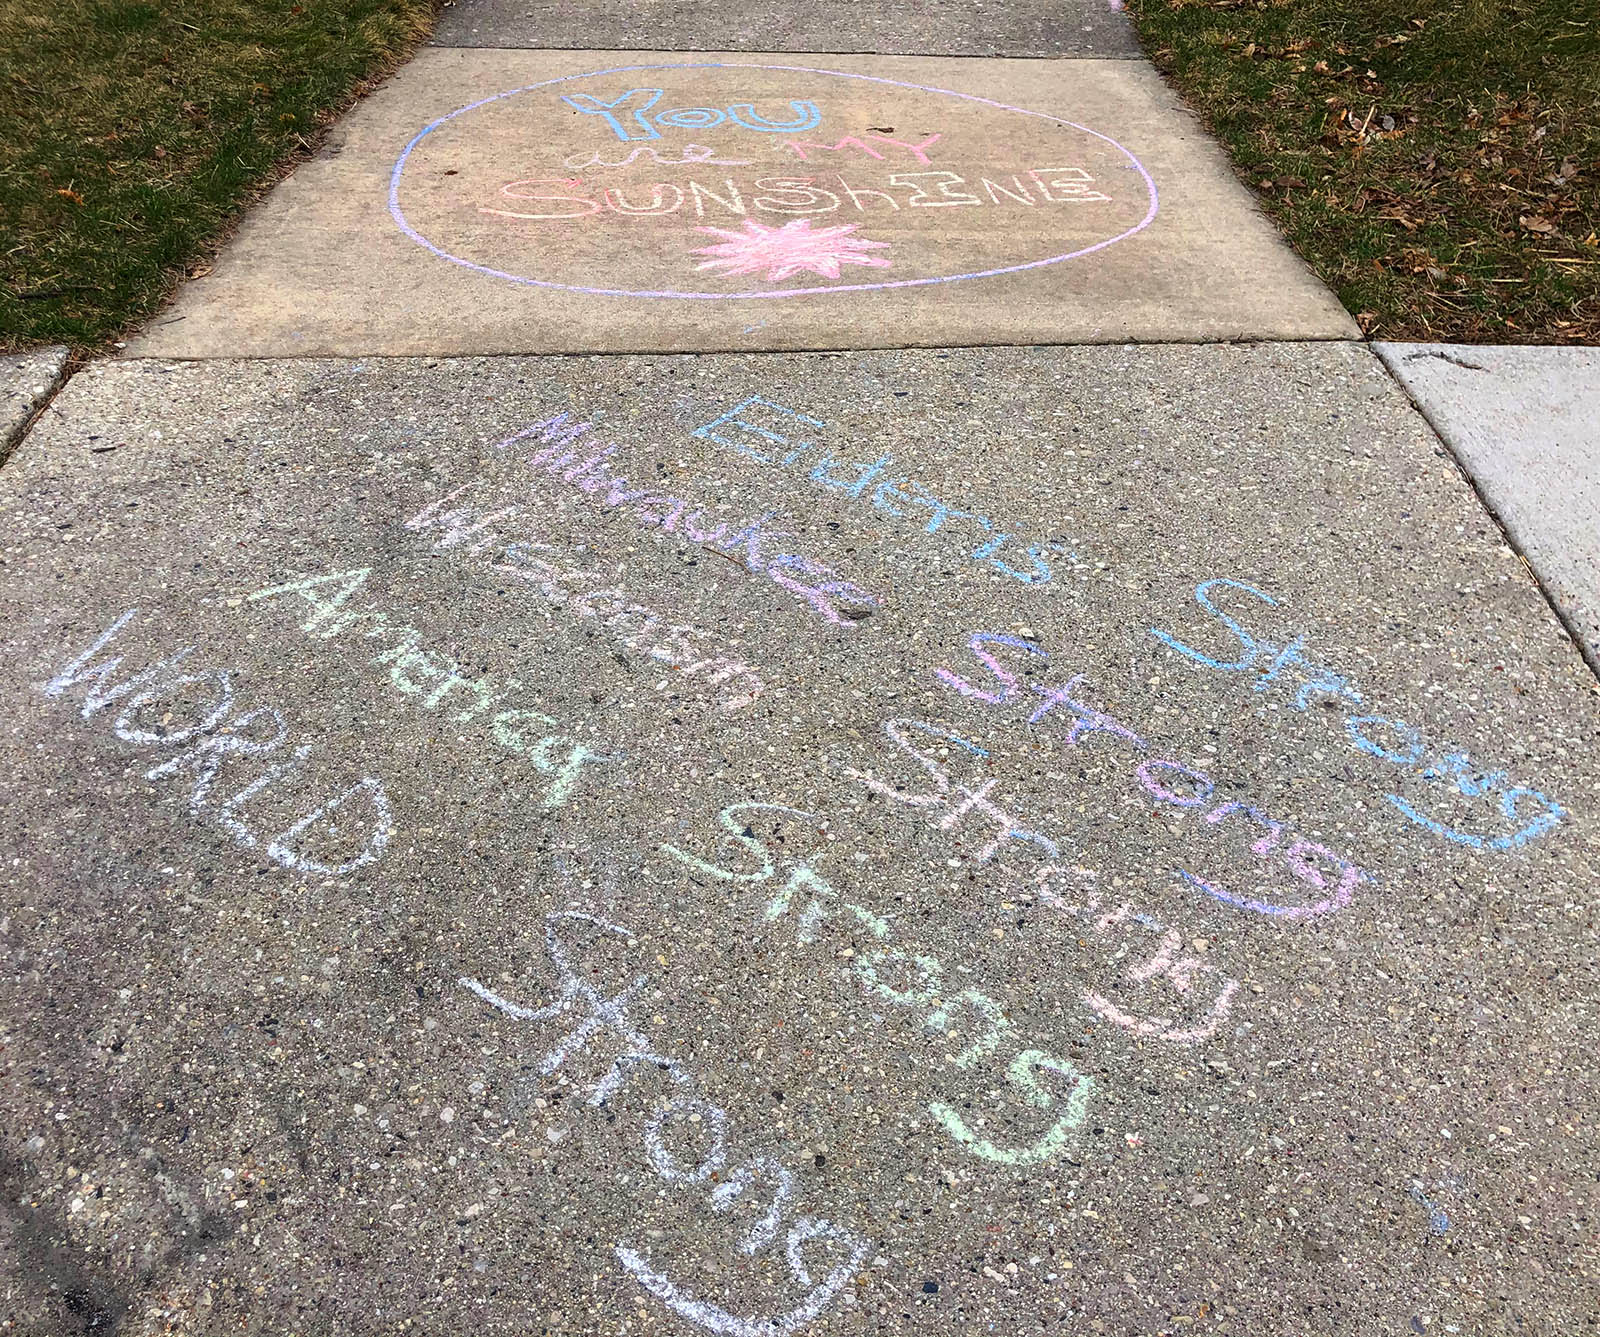 You
are MY
SUNShINE
Enderis Strong
Milwaukee Strong
Wisconsin Strong
America Strong
WORLD Strong